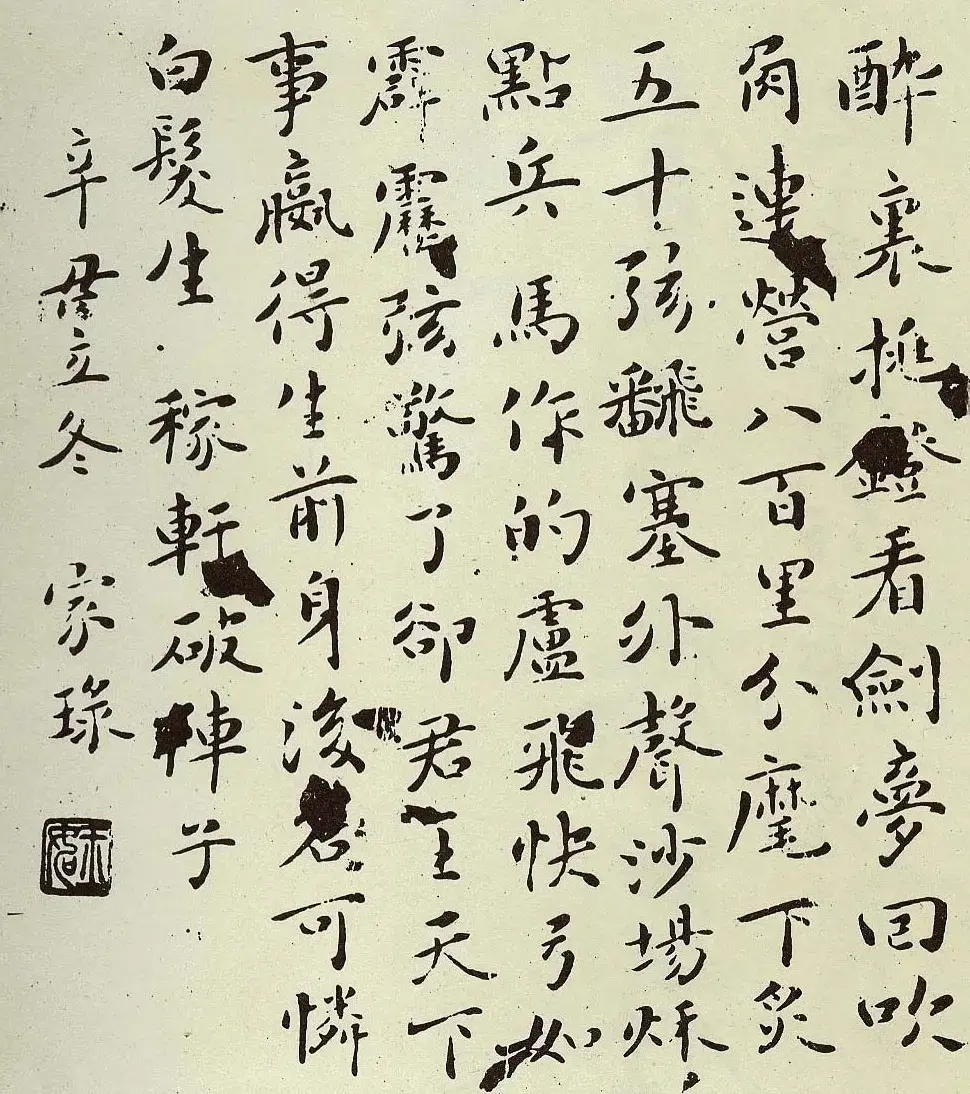 醉裏挑鐙看劍夢回吹
角連營八百里分麾下炙
五十弦飜塞外聲沙場秌
點兵馬作的盧飛快弓如
霹靂弦驚了卻君王天下
事贏得生前身後名可憐
白髮生 稼軒破陣子
辛立冬 家琭